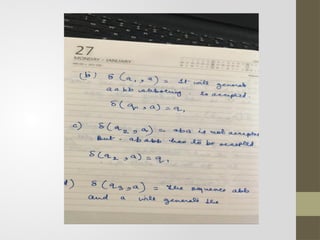 27
MONDAY - JANUARY
(b) δ(q₁, a) = It will generate
aabb substring. So accepted.
δ(q₁, a) = q₁
c) δ(q₂, a) = aba is not accepted
But - ababb has to be accepted
δ(q₂, a) = q₁
d) δ(q₃, a) = The sequence abb
and a will generate the